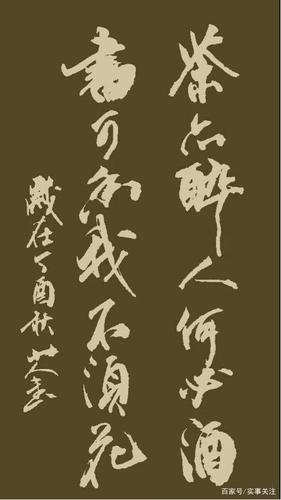 茶亦醉人何必酒
書可香我不須花
歲在丁酉秋
百家号/实事关注